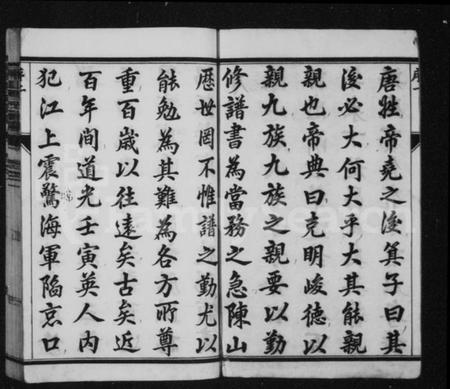 唐姓帝堯之後箕子曰其
後必大何大乎大其能親
親也帝典曰克明峻德以
親九族九族之親要以勤
修譜書為當務之急陳山
歷世罔不惟譜之勤尤以
能勉為其難為各方所尊
重百歲以往遠矣古矣近
百年間道光壬寅英人內
犯江上震驚海軍陷京口